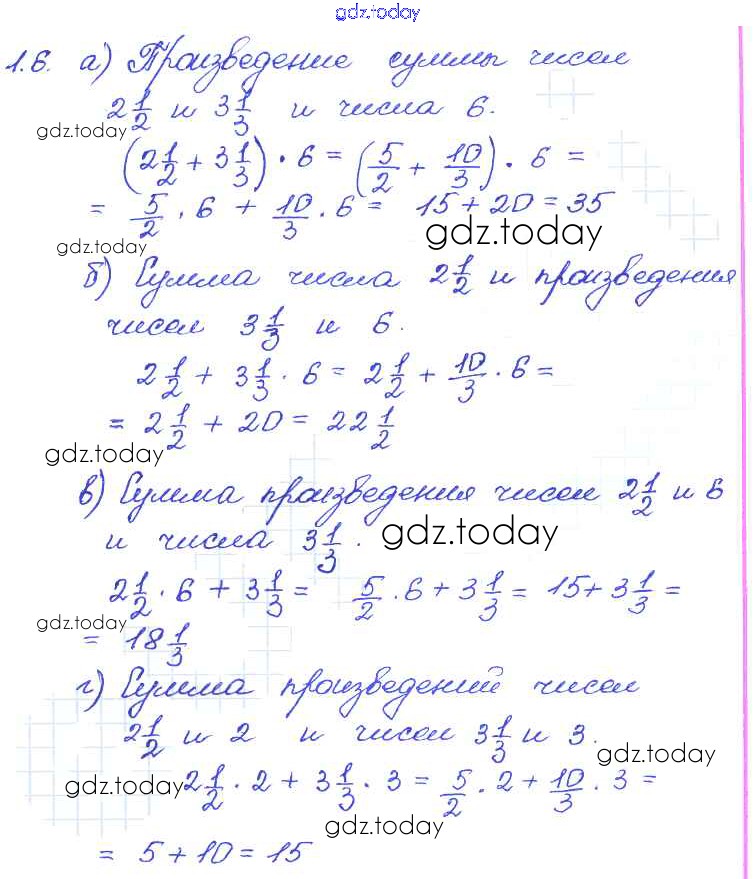 gdz.today
1.6. а) Произведение суммы чисел
2 1/2 и 3 1/3 и числа 6.
gdz.today
(2 1/2 + 3 1/3) · 6 = (5/2 + 10/3) · 6 =
= 5/2 · 6 + 10/3 · 6 = 15 + 20 = 35
gdz.today gdz.today
б) Сумма числа 2 1/2 и произведения
чисел 3 1/3 и 6.
2 1/2 + 3 1/3 · 6 = 2 1/2 + 10/3 · 6 =
= 2 1/2 + 20 = 22 1/2
gdz.today
в) Сумма произведения чисел 2 1/2 и 6
и числа 3 1/3. gdz.today
2 1/2 · 6 + 3 1/3 = 5/2 · 6 + 3 1/3 = 15 + 3 1/3 =
gdz.today
= 18 1/3
г) Сумма произведений чисел
2 1/2 и 2 и чисел 3 1/3 и 3.
gdz.today
gdz.today 2 1/2 · 2 + 3 1/3 · 3 = 5/2 · 2 + 10/3 · 3 =
gdz.today
= 5 + 10 = 15